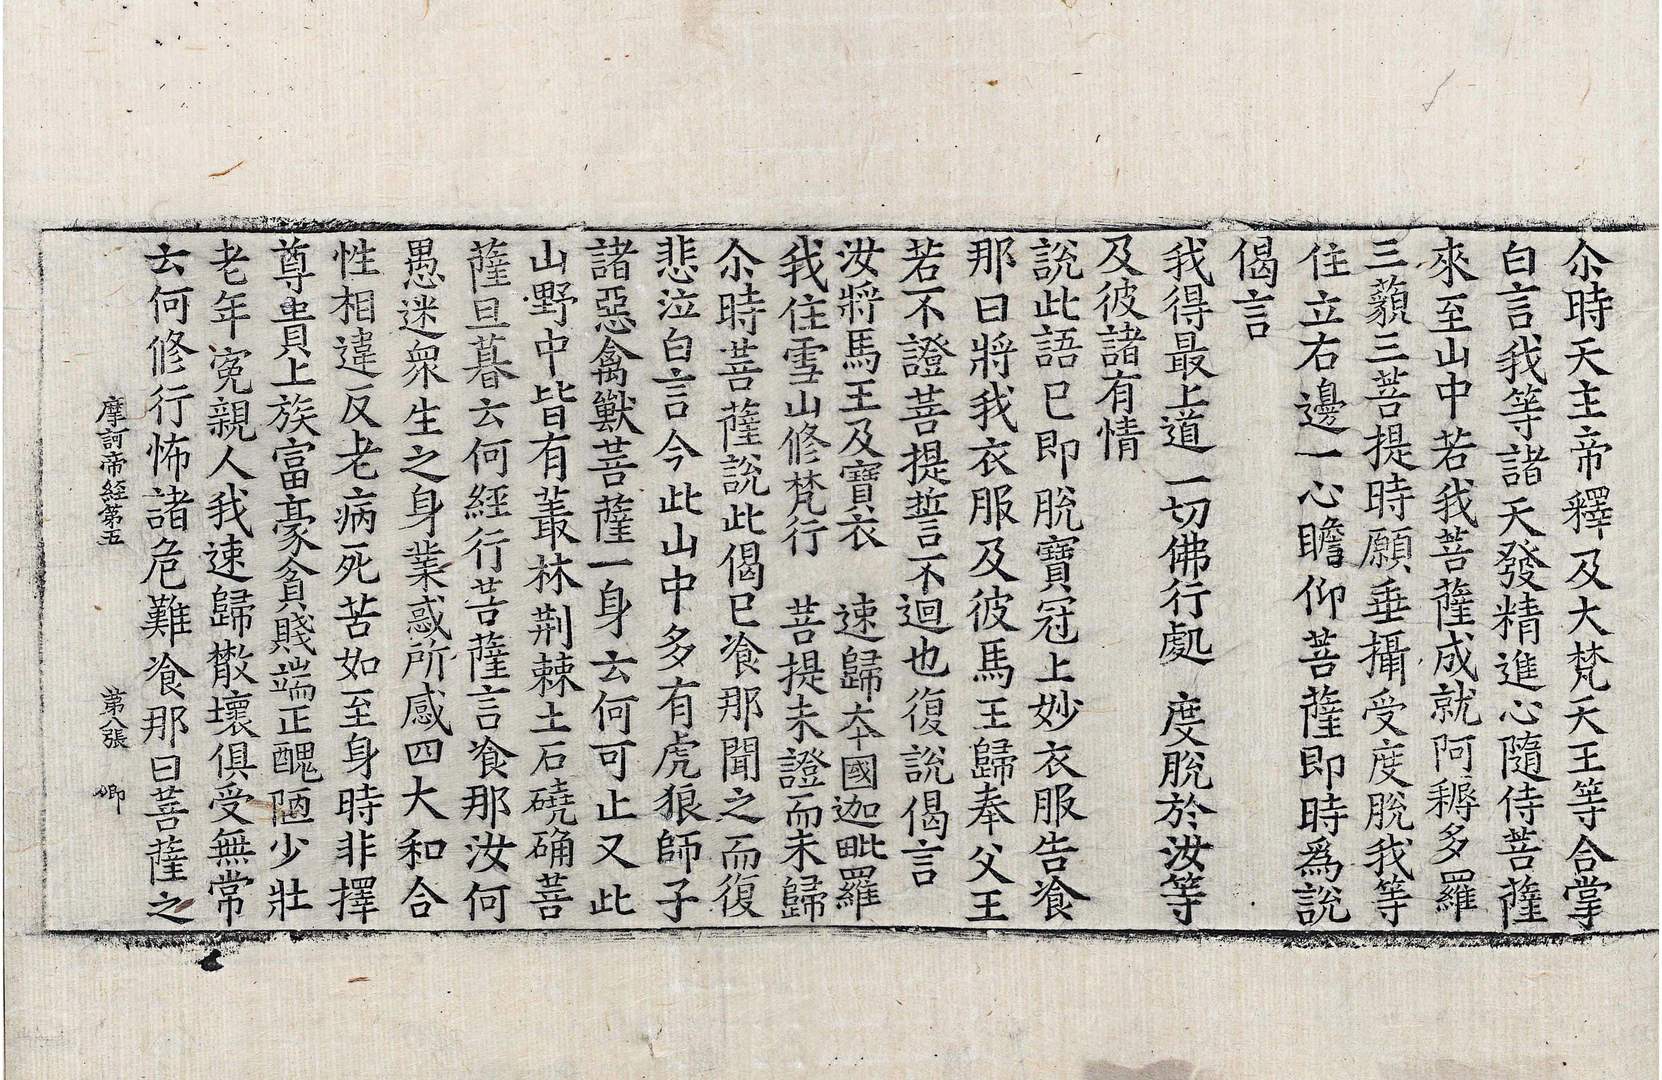 尒時天主帝釋及大梵天王等合掌
白言我等諸天發精進心隨侍菩薩
來至山中若我菩薩成就阿耨多羅
三藐三菩提時願垂攝受度脫我等
住立右邊一心瞻仰菩薩即時爲說
偈言
我得最上道　一切佛行處　度脫於汝等
及彼諸有情
說此語已即脫寶冠上妙衣服告飡
那曰將我衣服及彼馬王歸奉父王
若不證菩提誓不迴也復說偈言
汝將馬王及寶衣　速歸夲國迦毗羅
我住雪山修梵行　菩提未證而未歸
尒時菩薩說此偈已飡那聞之而復
悲泣白言今此山中多有虎狼師子
諸惡禽獸菩薩一身云何可止又此
山野中皆有叢林荆棘土石磽确菩
薩旦暮云何經行菩薩言飡那汝何
愚迷衆生之身業惑所感四大和合
性相違反老病死苦如至身時非擇
尊貴上族富豪貧賤端正醜陋少壯
老年寃親人我速歸散壞俱受無常
云何修行怖諸危難飡那曰菩薩之
摩訶帝經第五　第八張　卿